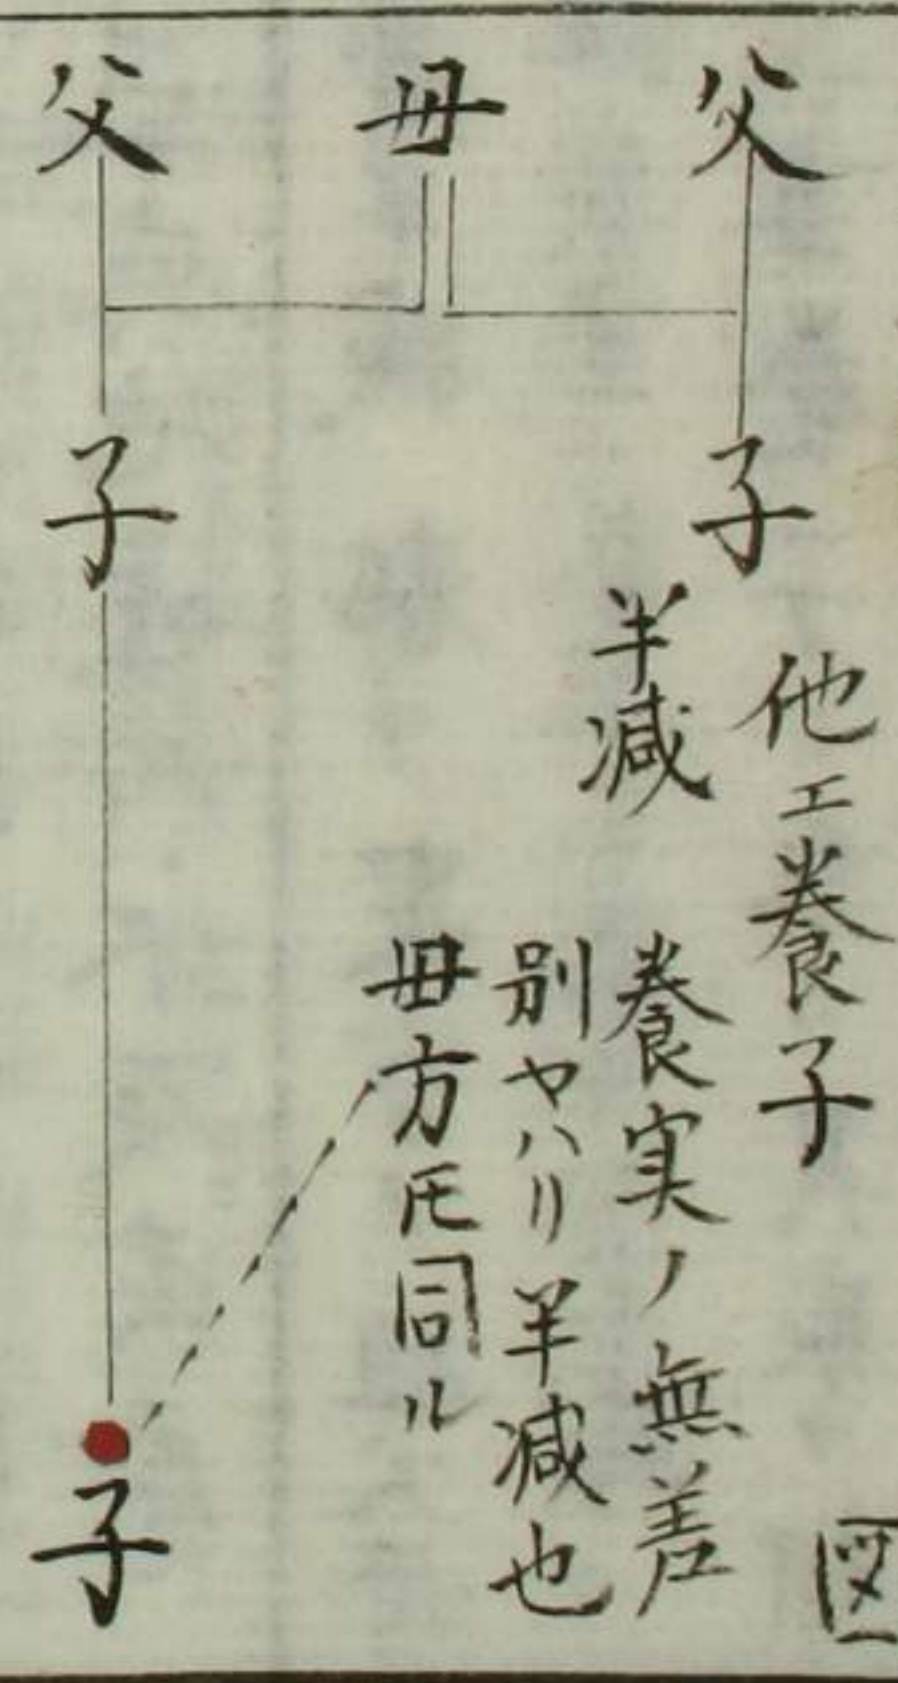 図
父
母
父
子
子
他エ養子
半減
養実ノ無差
別ヤハリ半減也
母方モ同ル
子